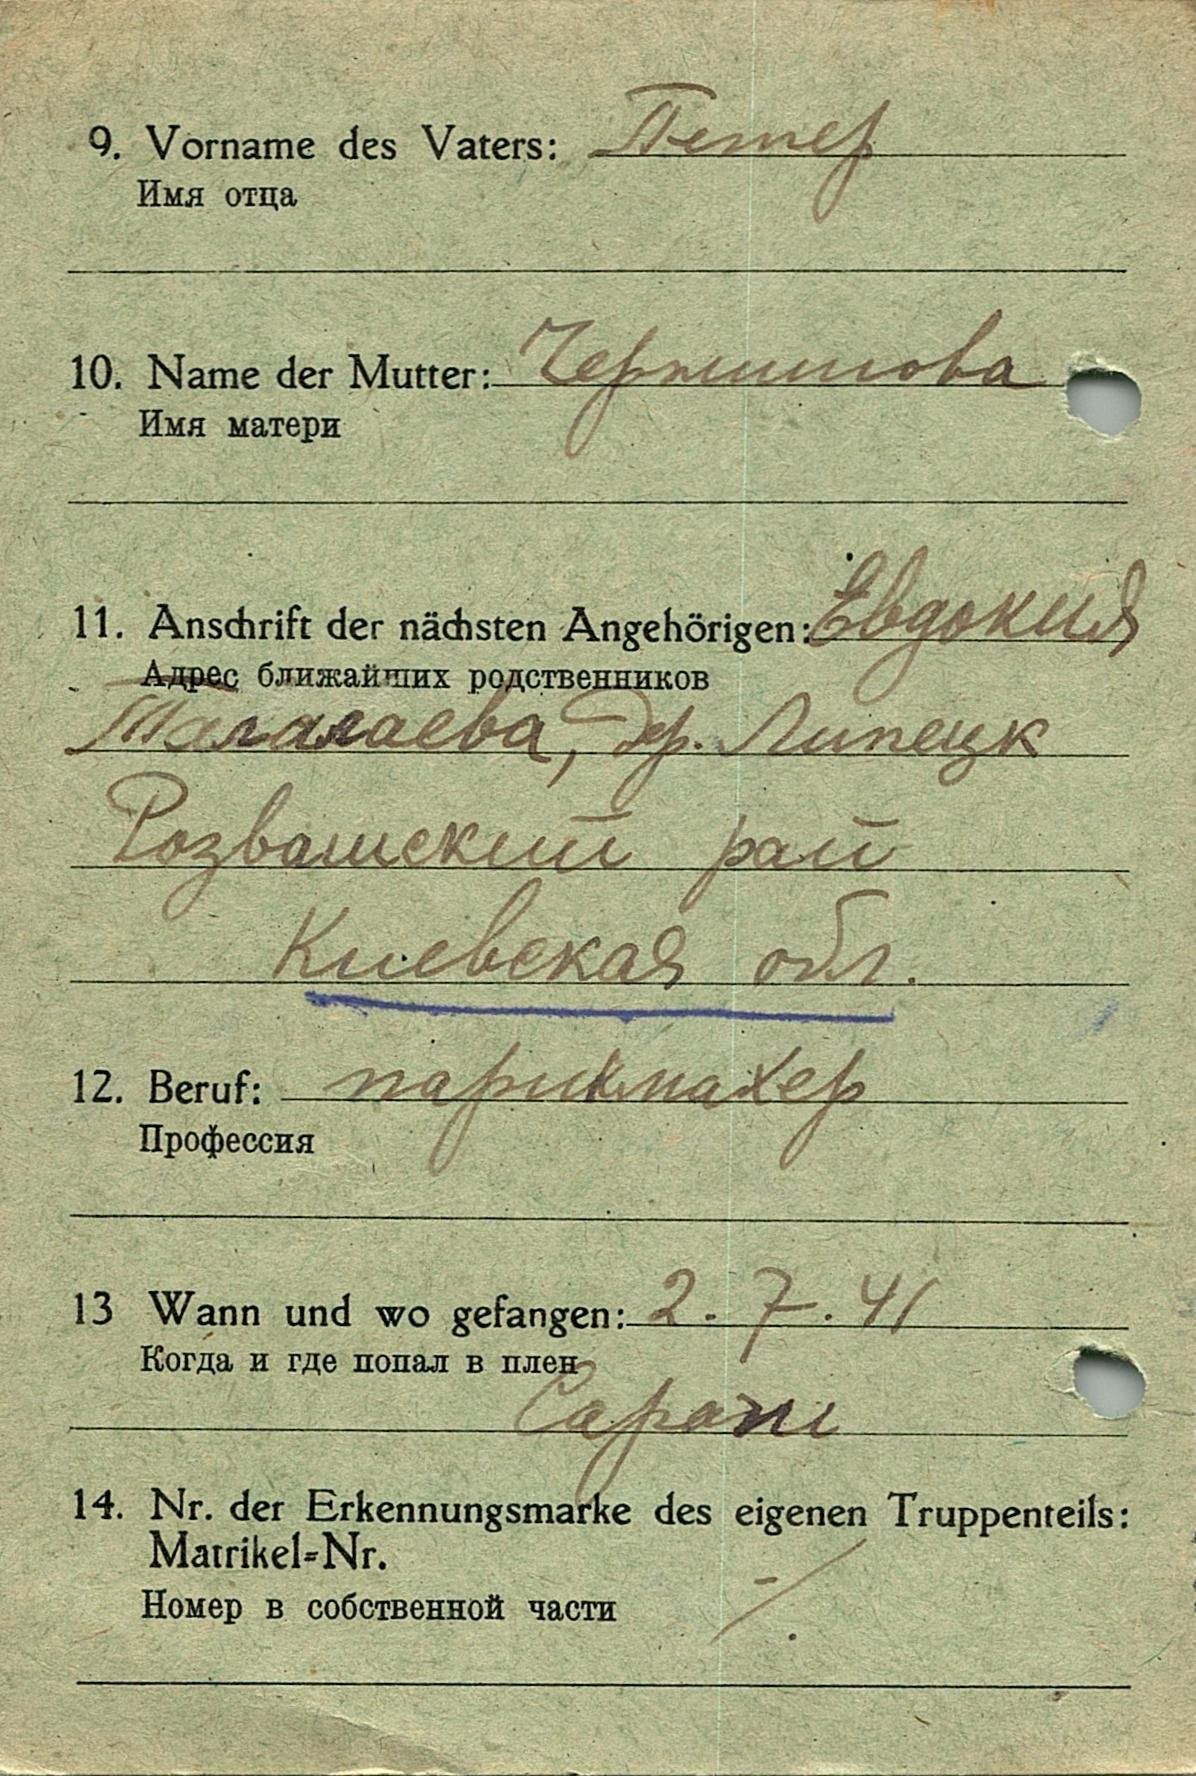 9. Vorname des Vaters: Петер
Имя отца
10. Name der Mutter: Чернишова
Имя матери
11. Anschrift der nächsten Angehörigen: Евдокия
Адрес ближайших родственников
Талалаева, Др. Липецк
Розвашский рай
Киевская обл.
12. Beruf: парикмахер
Профессия
13 Wann und wo gefangen: 2.7.41
Когда и где попал в плен
14. Nr. der Erkennungsmarke des eigenen Truppenteils:
Matrikel-Nr.
Номер в собственной части